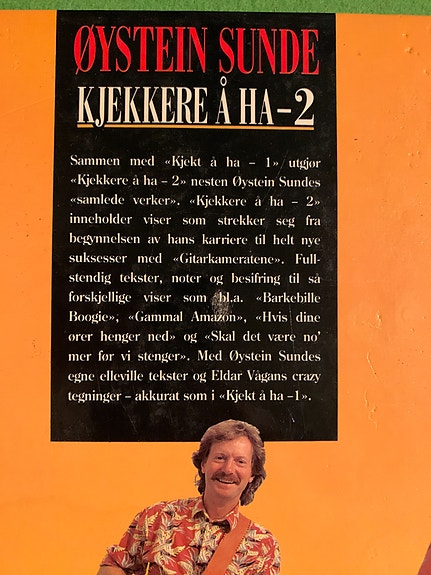 ØYSTEIN SUNDE
KJEKKERE Å HA – 2
Sammen med «Kjekt å ha – 1» utgjør
«Kjekkere å ha – 2» nesten Øystein Sundes
«samlede verker». «Kjekkere å ha – 2»
inneholder viser som strekker seg fra
begynnelsen av hans karriere til helt nye
suksesser med «Gitarkameratene». Full-
stendig tekster, noter og besifring til så
forskjellige viser som bl.a. «Barkebille
Boogie», «Gammal Amazon», «Hvis dine
ører henger ned» og «Skal det være no’
mer før vi stenger». Med Øystein Sundes
egne elleville tekster og Eldar Vågans crazy
tegninger – akkurat som i «Kjekt å ha –1».